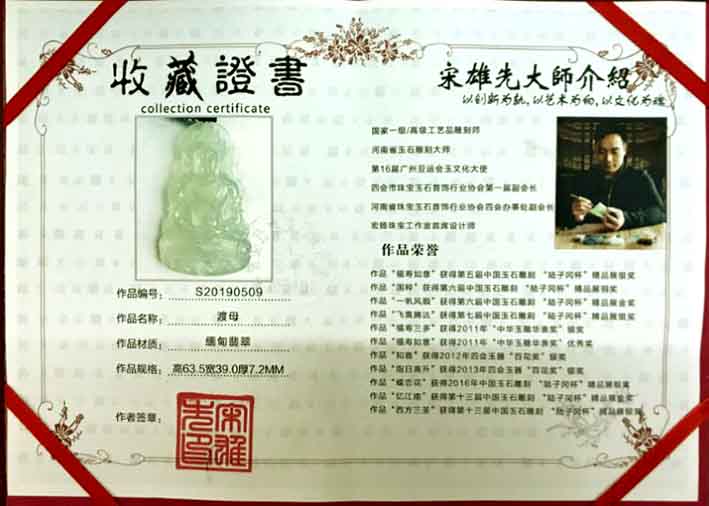 收藏證書
collection certificate
作品编号: S20190509
作品名称: 渡母
作品材质: 缅甸翡翠
作品规格: 高63.5宽39.0厚7.2MM
作者签章:
宋雄先印
宋雄先大師介紹
以创新为轨,以艺术为向,以文化为魂
国家一级/高级工艺品雕刻师
河南省玉石雕刻大师
第16届广州亚运会玉文化大使
四会市珠宝玉石首饰行业协会第一届副会长
河南省珠宝玉石首饰行业协会四会办事处副会长
宏雄珠宝工作室首席设计师
作品荣誉
作品“福寿如意”获得第五届中国玉石雕刻“陆子冈杯”精品展银奖
作品“国粹”获得第六届中国玉石雕刻“陆子冈杯”精品展铜奖
作品“一帆风顺”获得第六届中国玉石雕刻“陆子冈杯”精品展金奖
作品“飞黄腾达”获得第七届中国玉石雕刻“陆子冈杯”精品展银奖
作品“福寿三多”获得2011年“中华玉雕华表奖”银奖
作品“福寿如意”获得2011年“中华玉雕华表奖”优秀奖
作品“知音”获得2012年四会玉雕“百花奖”银奖
作品“指日高升”获得2013年四会玉雕“百花奖”铜奖
作品“蝶恋花”获得2016年中国玉石雕刻“陆子冈杯”精品展银奖
作品“忆江南”获得第十三届中国玉石雕刻“陆子冈杯”精品展金奖
作品“西方三圣”获得第十三届中国玉石雕刻“陆子冈杯”精品展银奖